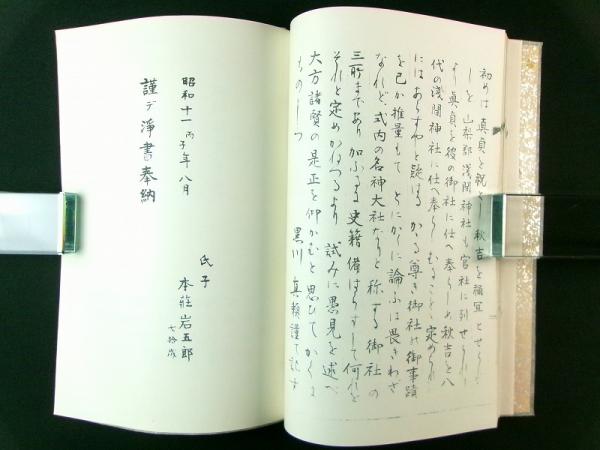 初めは真貞を祝とし秋吉を禰宜とせられ
しを山梨郡浅間神社も官社に列せられ
より真貞を彼の御社に仕へ奉らしめ秋吉を八
代の浅間神社に仕へ奉らしむることゝ定められ
にはあらすやと疑はる かゝる尊き御社の御事蹟
を己か推量もて とにかくに論ふは畏きわざ
なれど 式内の名神大社なりと称する御社の
三所まであり 加ふるに史籍備はらすして何れを
それと定めかねつるより 試みに愚見を述べ
大方諸賢の是正を仰かむと思ひてかくは
ものしつ 黒川真頼謹て記す
昭和十一丙子年八月
謹デ浄書奉納
氏子
本荘岩五郎
七拾歳